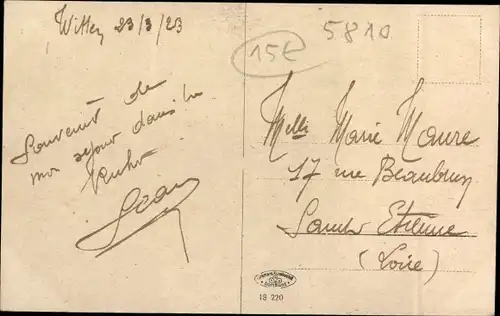 Witten 23/3/23
5810
15€
Souvenir de
mon sejour dans la
Ruhr
Jean
Melle Marie Maure
17 rue Beaubrun
Saint Etienne
(Loire)
18 220